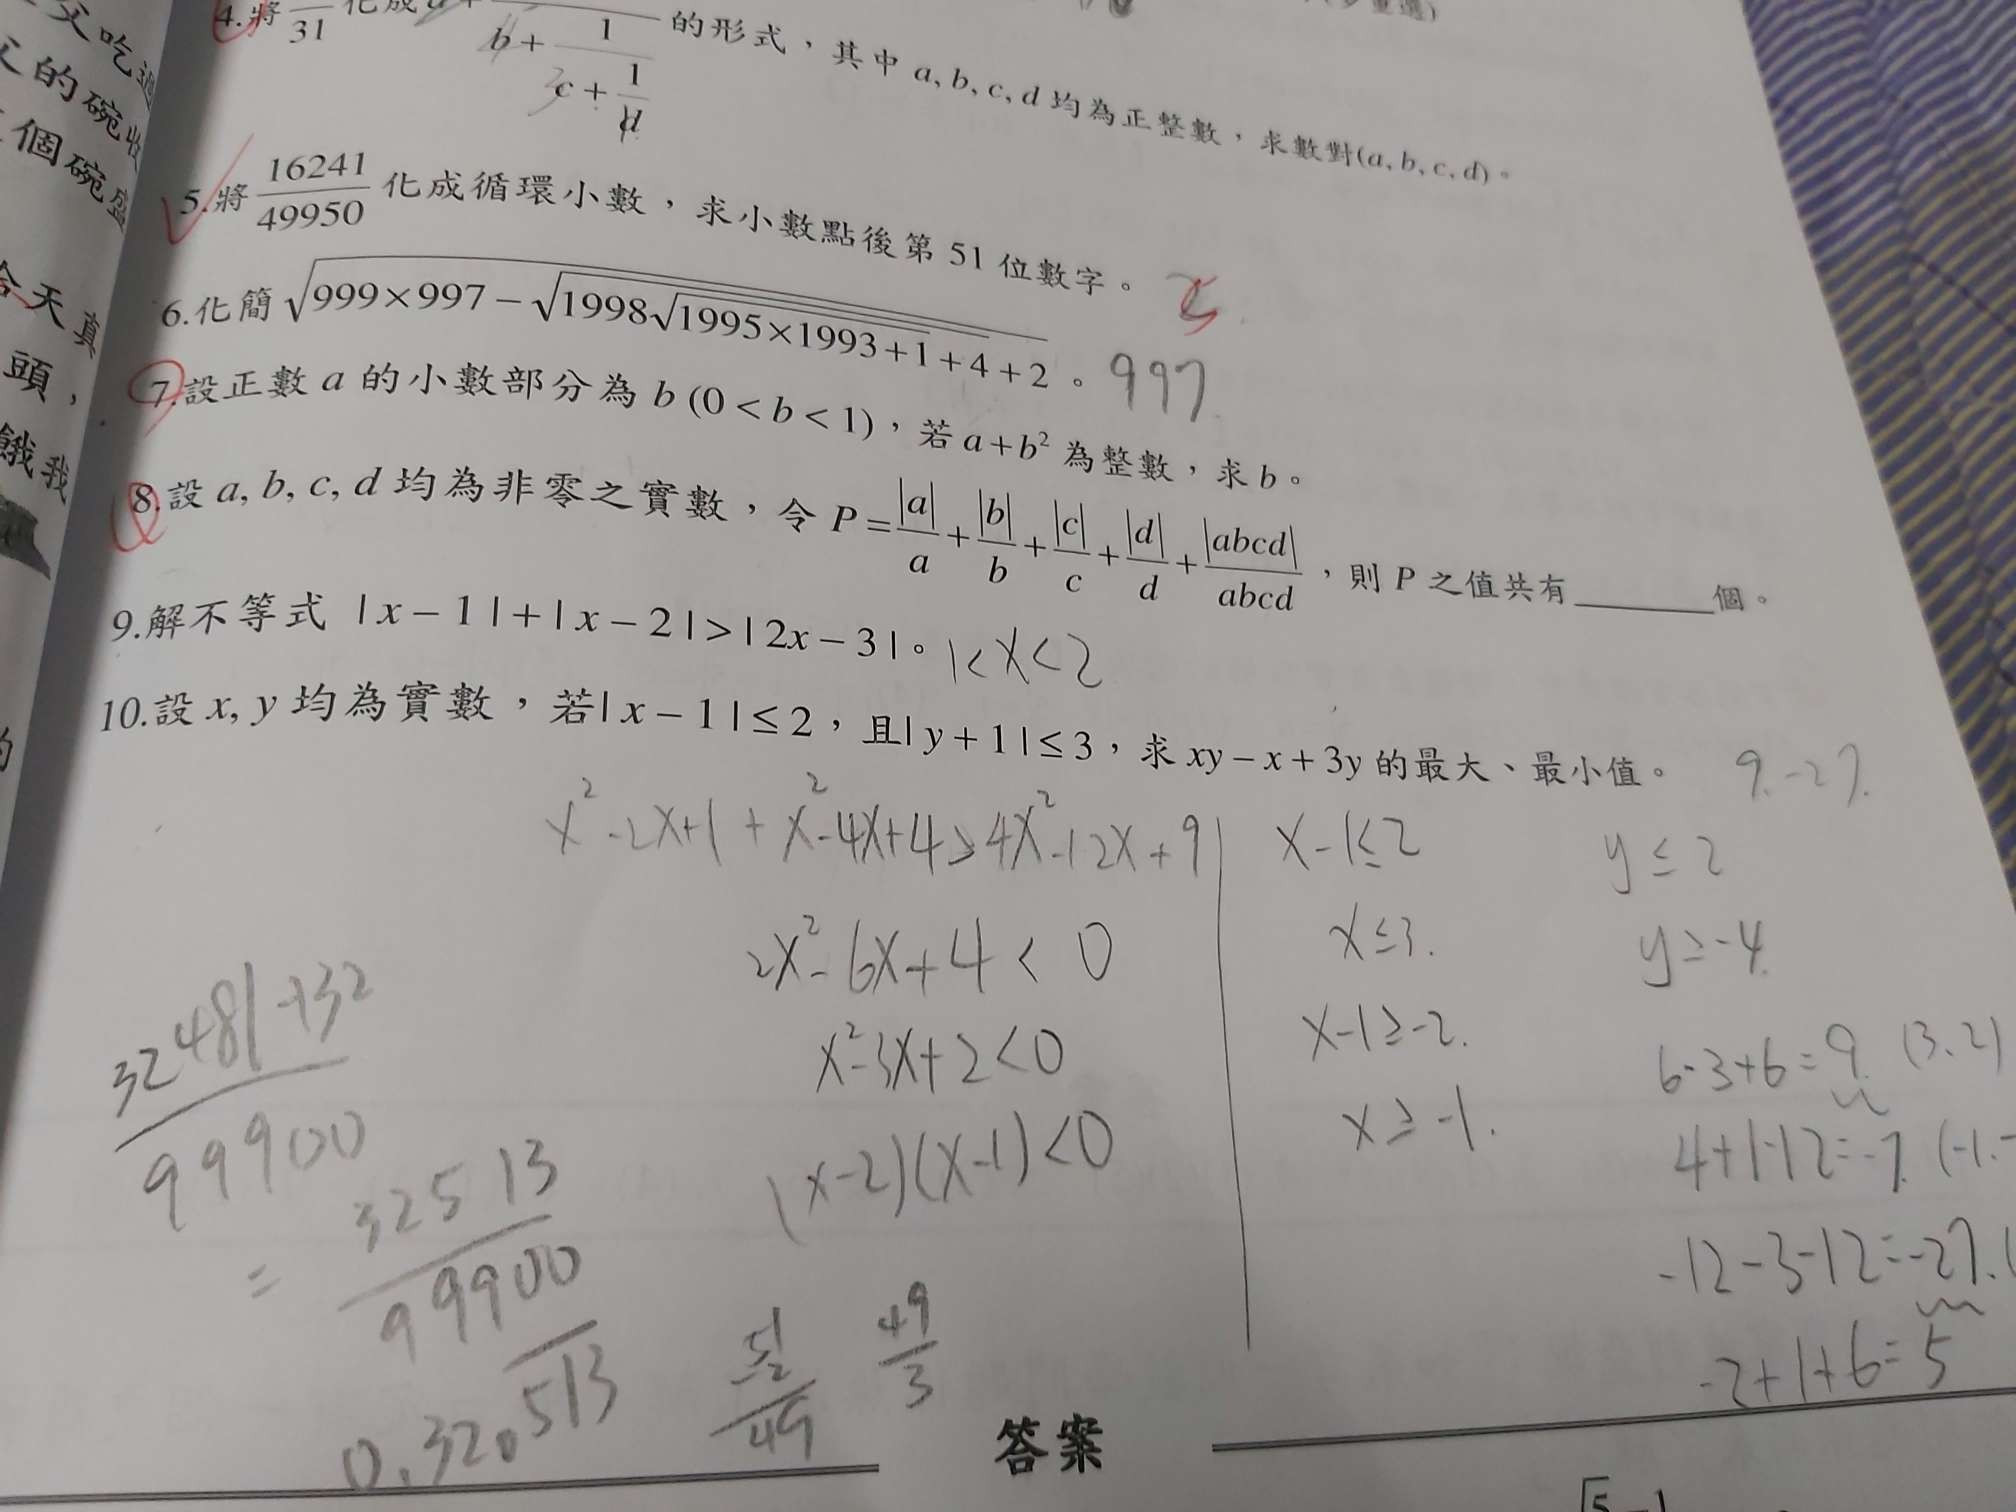 4.將 /31 化成 a+ 1/(b+1/(c+1/d)) 的形式，其中 a, b, c, d 均為正整數，求數對(a, b, c, d)。
5.將 16241/49950 化成循環小數，求小數點後第 51 位數字。 5
6.化簡 √(999×997−√(1998√(1995×1993+1)+4)+2) 。 997
7.設正數 a 的小數部分為 b (0<b<1)，若 a+b² 為整數，求 b。
8.設 a, b, c, d 均為非零之實數，令 P=|a|/a+|b|/b+|c|/c+|d|/d+|abcd|/abcd，則 P 之值共有______個。
9.解不等式 |x−1|+|x−2|>|2x−3|。 1<x<2
10.設 x, y 均為實數，若|x−1|≤2，且|y+1|≤3，求 xy−x+3y 的最大、最小值。 9.-27.
x²-2x+1+x²-4x+4>4x²-12x+9
2x²-6x+4<0
x²-3x+2<0
(x-2)(x-1)<0
x-1≤2
x≤3.
x-1≥-2.
x≥-1.
y≤2
y≥-4.
6-3+6=9 (3.2)
4+1-12=-7. (-1.-
-12-3-12=-27. (
-2+1+6=5
32481+32/99900
=32513/99900
0.320513
51-2/49
49/3
答案
√5−1
父吃過
的碗收
個碗盛
今天真
頭，
餓我
的